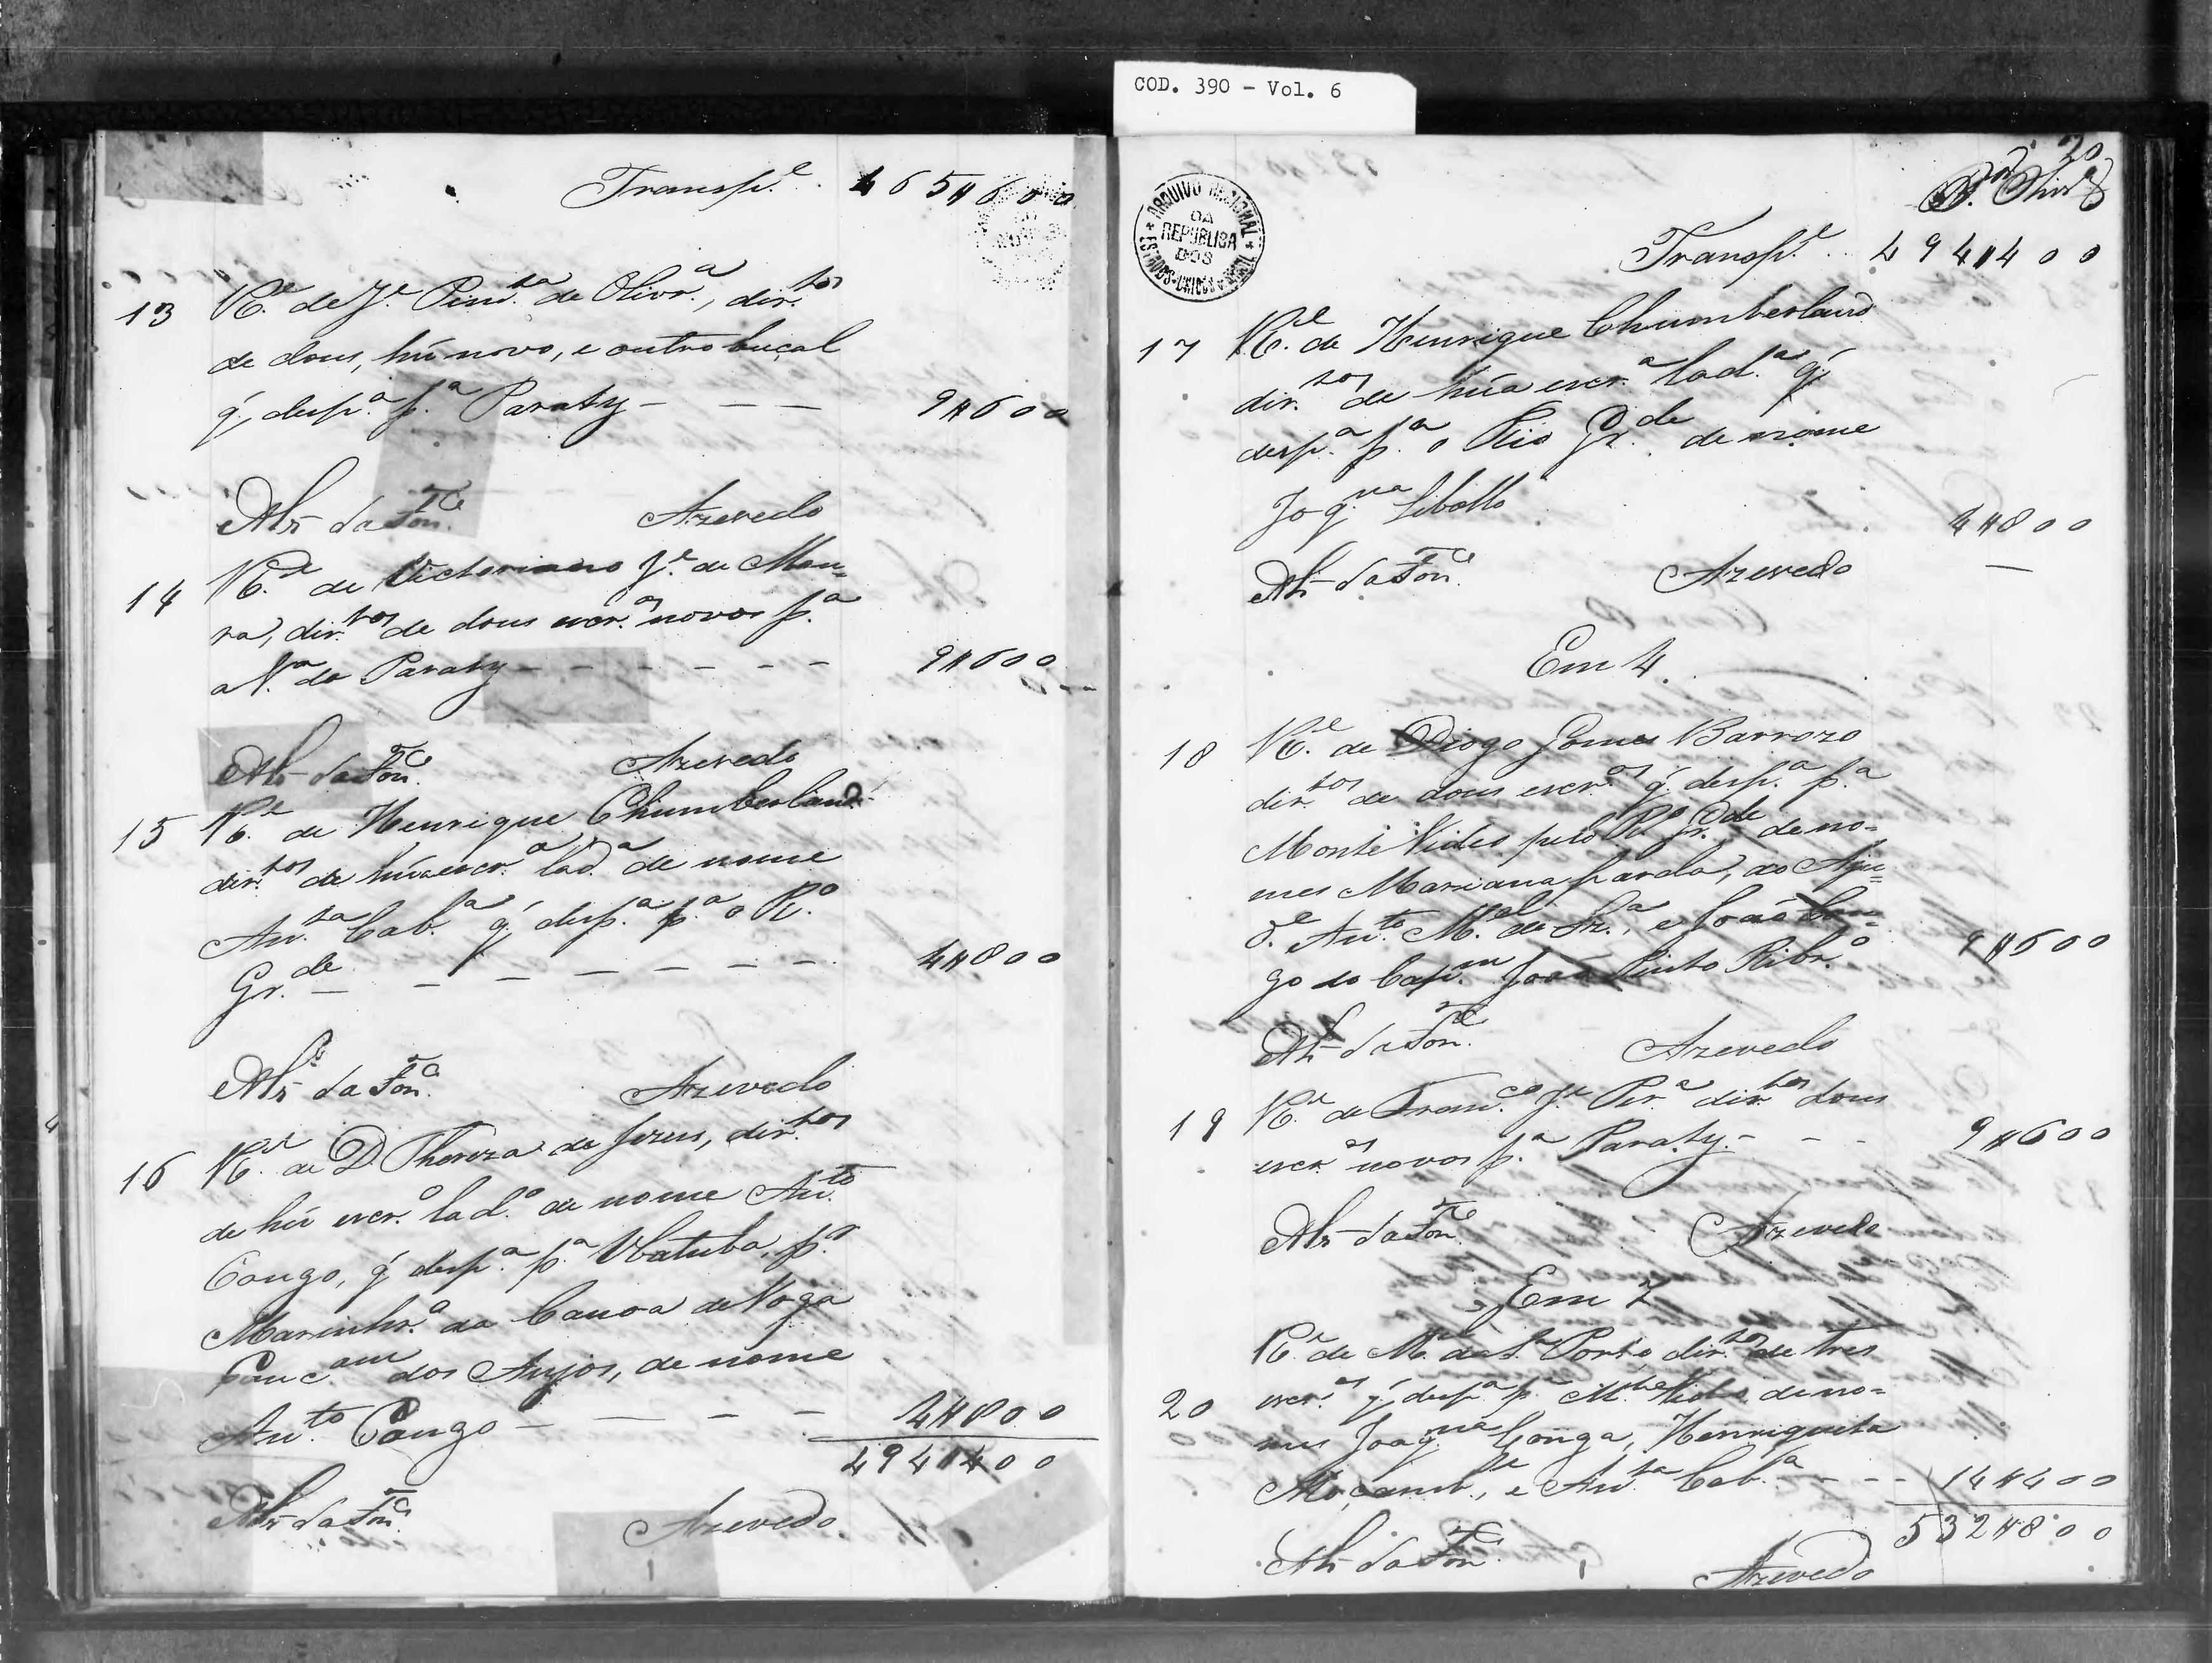 COD. 390 - Vol. 6
Transp.e 465#600
13 R.e de J.e Pim.ta de Olivr.a, dir.tos
de dous, hũ novo, e outro buçal
q' desp.a p.a Paraty - - - 9#600
Alz da Fon.ca Azevedo
14 R.e de Victoriano J.e de Mou=
ra, dir.tos de dous escr.os novos p.a
a V.a de Paraty - - - - - - 9#600
Alz da Fon.ca Azevedo
15 R.e de Henrique Chumberland
dir.tos de hũa escr.a lad.a de nome
An.ta Cab.a q' desp.a p.a o R.o
Gr.de - - - - - - - 4#800
Alz da Fon.ca Azevedo
16 R.e de D. Thereza de Jezus, dir.tos
de hũ escr.o lad.o de nome An.to
Congo, q' desp.a p.a Ubatuba, p.a
Marinhr.o da Canoa de Voga
Conc.am dos Anjos, de nome
An.to Congo - - - - 4#800
494#400
Alz da Fon.ca Azevedo
20
ARQUIVO NACIONAL DA REPUBLICA DOS ESTADOS-UNIDOS
Transp.e 494#400
17 R.e de Henrique Chumberland
dir.tos de hũa escr.a lad.a q'
desp.a p.a o Rio Gr.de de nome
Joq.na Libollo 4#800
Alz da Fon.ca Azevedo
Em 4.
18 R.e de Diogo Gomes Barrozo
dir.tos de dous escr.os q' desp.a p.a
Monte Video pelo R.o Gr.de de no=
mes Mariana parda, do Aju=
d.e An.to M.el de Sz.a, e João Con=
go do Cap.m João Pinto Ribr.o 9#600
Alz da Fon.ca Azevedo
19 R.e de Fran.co J.e Per.a dir.tos dous
escr.os novos p.a Paraty - - - 9#600
Alz da Fon.ca Azevedo
Em 7
R.e de M.el da S.a Porto, dir.tos de tres
20 escr.os q' desp.a p.a M.te Video de no=
mes Joaq.na Conga, Henriqueta
Moçamb.e, e An.ta Cab.a - - - 14#400
532#800
Alz da Fon.ca Azevedo